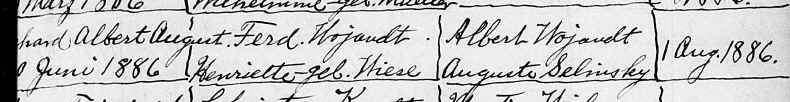 März 1886 Wilhelmine geb. Mueller
hard Albert August. Ferd. Wojandt. Albert Wojandt 1 Aug. 1886.
Juni 1886 Henriette geb. Wiese Auguste Selinsky